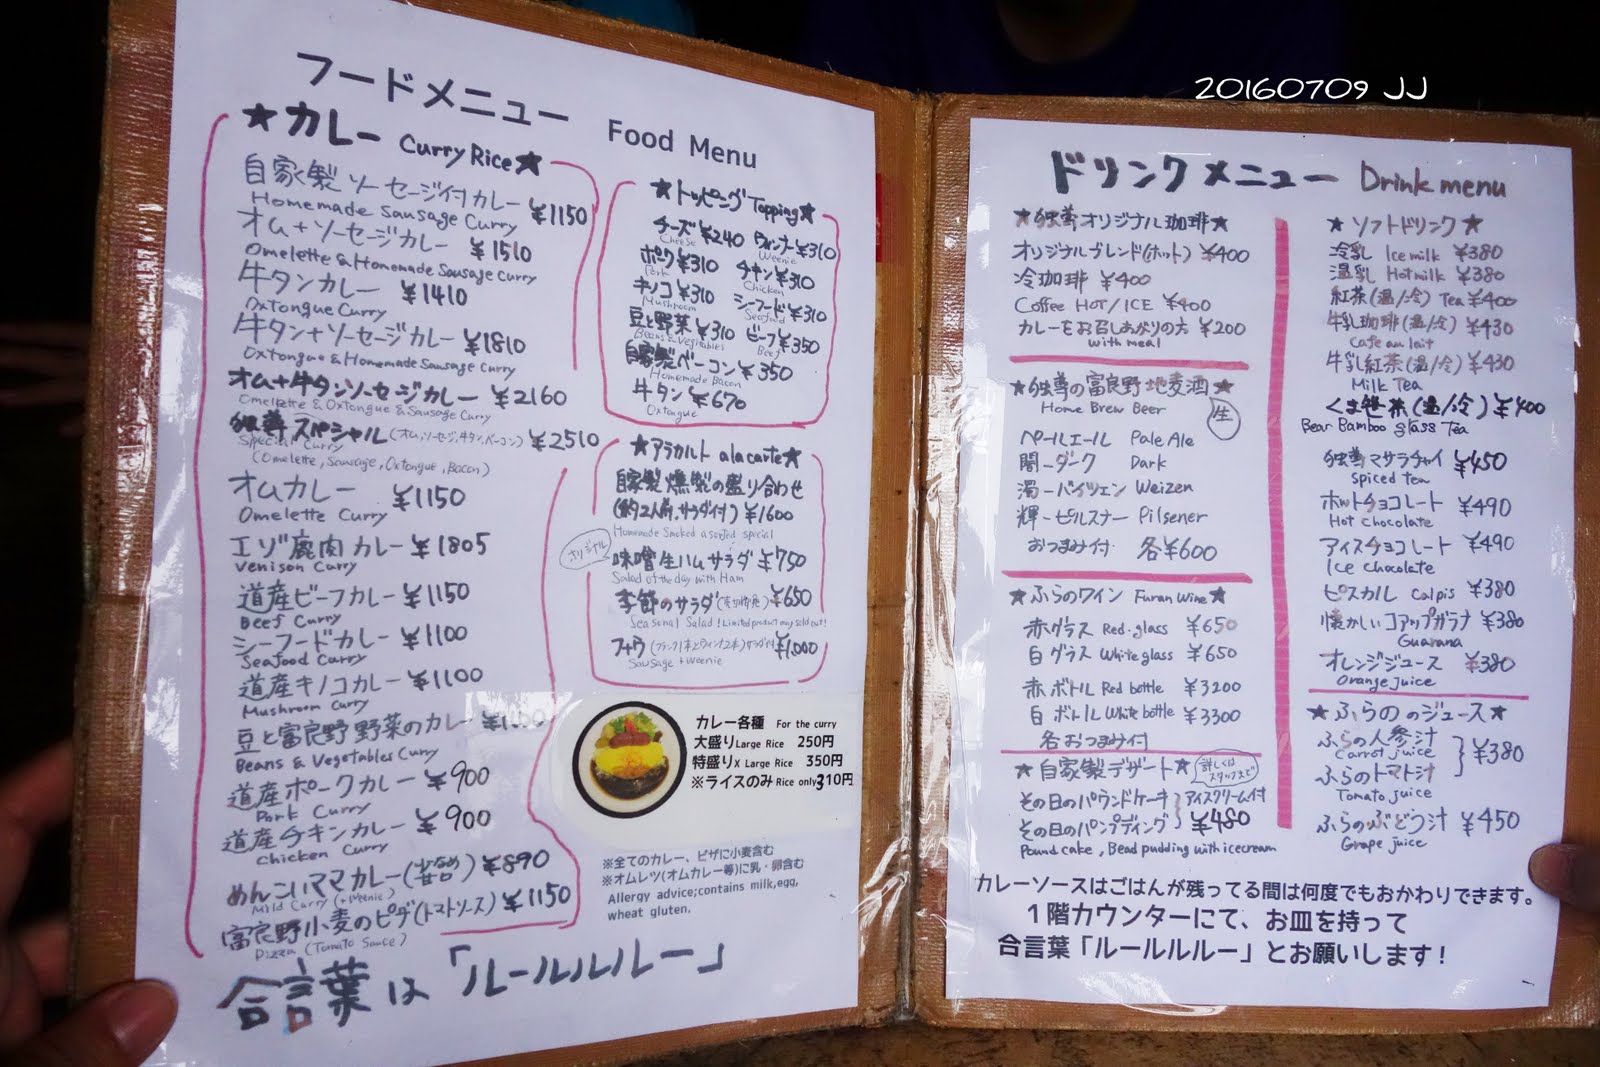 20160709 JJ
フードメニュー Food Menu
★カレー Curry Rice★
自家製ソーセージ付カレー ¥1150
Homemade Sausage Curry
オム+ソーセージカレー ¥1510
Omelette & Homemade Sausage Curry
牛タンカレー ¥1410
Oxtongue Curry
牛タン+ソーセージカレー ¥1810
Oxtongue & Homemade Sausage Curry
オム+牛タンソーセージカレー ¥2160
Omelette & Oxtongue & Sausage Curry
独尊スペシャル(オム,ソーセージ,牛タン,ベーコン) ¥2510
Special Curry
(Omelette, Sausage, Oxtongue, Bacon)
オムカレー ¥1150
Omelette Curry
エゾ鹿肉カレー ¥1805
Venison Curry
道産ビーフカレー ¥1150
Beef Curry
シーフードカレー ¥1100
Seafood Curry
道産キノコカレー ¥1100
Mushroom Curry
豆と富良野野菜のカレー
Beans & Vegetables Curry
道産ポークカレー ¥900
Pork Curry
道産チキンカレー ¥900
Chicken Curry
めんこいママカレー ¥890
Mild Curry (+Weenie)
富良野小麦のピザ(トマトソース) ¥1150
Pizza (Tomato Sauce)
合言葉は「ルールルルー」
★トッピング Topping★
チーズ ¥240 ウィンナー ¥310
Cheese Weenie
ポーク ¥310 チキン ¥310
Pork Chicken
キノコ ¥310 シーフード ¥310
Mushroom Seafood
豆と野菜 ¥310 ビーフ ¥350
Beans & Vegitables Beef
自家製ベーコン ¥350
Homemade Bacon
牛タン ¥670
Oxtongue
★アラカルト alacarte★
自家製燻製の盛り合わせ
(約2人前,サラダ付) ¥1600
Homemade Smoked asorted special
オリジナル
味噌生ハムサラダ ¥750
Salad of the day with Ham
季節のサラダ ¥650
Seasonal Salad !Limited product may sold out!
¥1,000
Sausage + weenie
カレー各種 For the curry
大盛り Large Rice 250円
特盛り X Large Rice 350円
※ライスのみ Rice only 310円
※全てのカレー、ピザに小麦含む
※オムレツ(オムカレー等)に乳・卵含む
Allergy advice;contains milk,egg,
wheat gluten.
ドリンクメニュー Drink menu
★独尊オリジナル珈琲★
オリジナルブレンド(ホット) ¥400
冷珈琲 ¥400
Coffee HOT/ICE ¥400
カレーをお召しあがりの方 ¥200
with meal
★独尊の富良野地麦酒★
Home Brew Beer 生
ペールエール Pale Ale
闇-ダーク Dark
濁-バイツェン Weizen
輝-ピルスナー Pilsener
おつまみ付 各¥600
★ふらのワイン Furan Wine★
赤グラス Red.glass ¥650
白グラス White glass ¥650
赤ボトル Red bottle ¥3200
白ボトル White bottle ¥3300
各おつまみ付
★自家製デザート★ 詳しくはスタッフまで
その日のパウンドケーキ アイスクリーム付
その日のパンプディング ¥480
Pound cake, Bead pudding with icecream
★ソフトドリンク★
冷乳 Ice milk ¥380
温乳 Hot milk ¥380
紅茶(温/冷) Tea ¥400
牛乳珈琲(温/冷) ¥430
Cafe au lait
牛乳紅茶(温/冷) ¥430
Milk Tea
くま笹茶(温/冷) ¥400
Bear Bamboo glass Tea
独尊マサラチャイ ¥450
spiced tea
ホットチョコレート ¥490
Hot chocolate
アイスチョコレート ¥490
Ice chocolate
ピスカル Calpis ¥380
懐かしいコアップガラナ ¥380
Guarana
オレンジジュース ¥380
Orange juice
★ふらののジュース★
ふらの人参汁
Carrot juice
ふらのトマト汁 ¥380
Tomato juice
ふらのぶどう汁 ¥450
Grape juice
カレーソースはごはんが残ってる間は何度でもおかわりできます。
1階カウンターにて、お皿を持って
合言葉「ルールルルー」とお願いします!